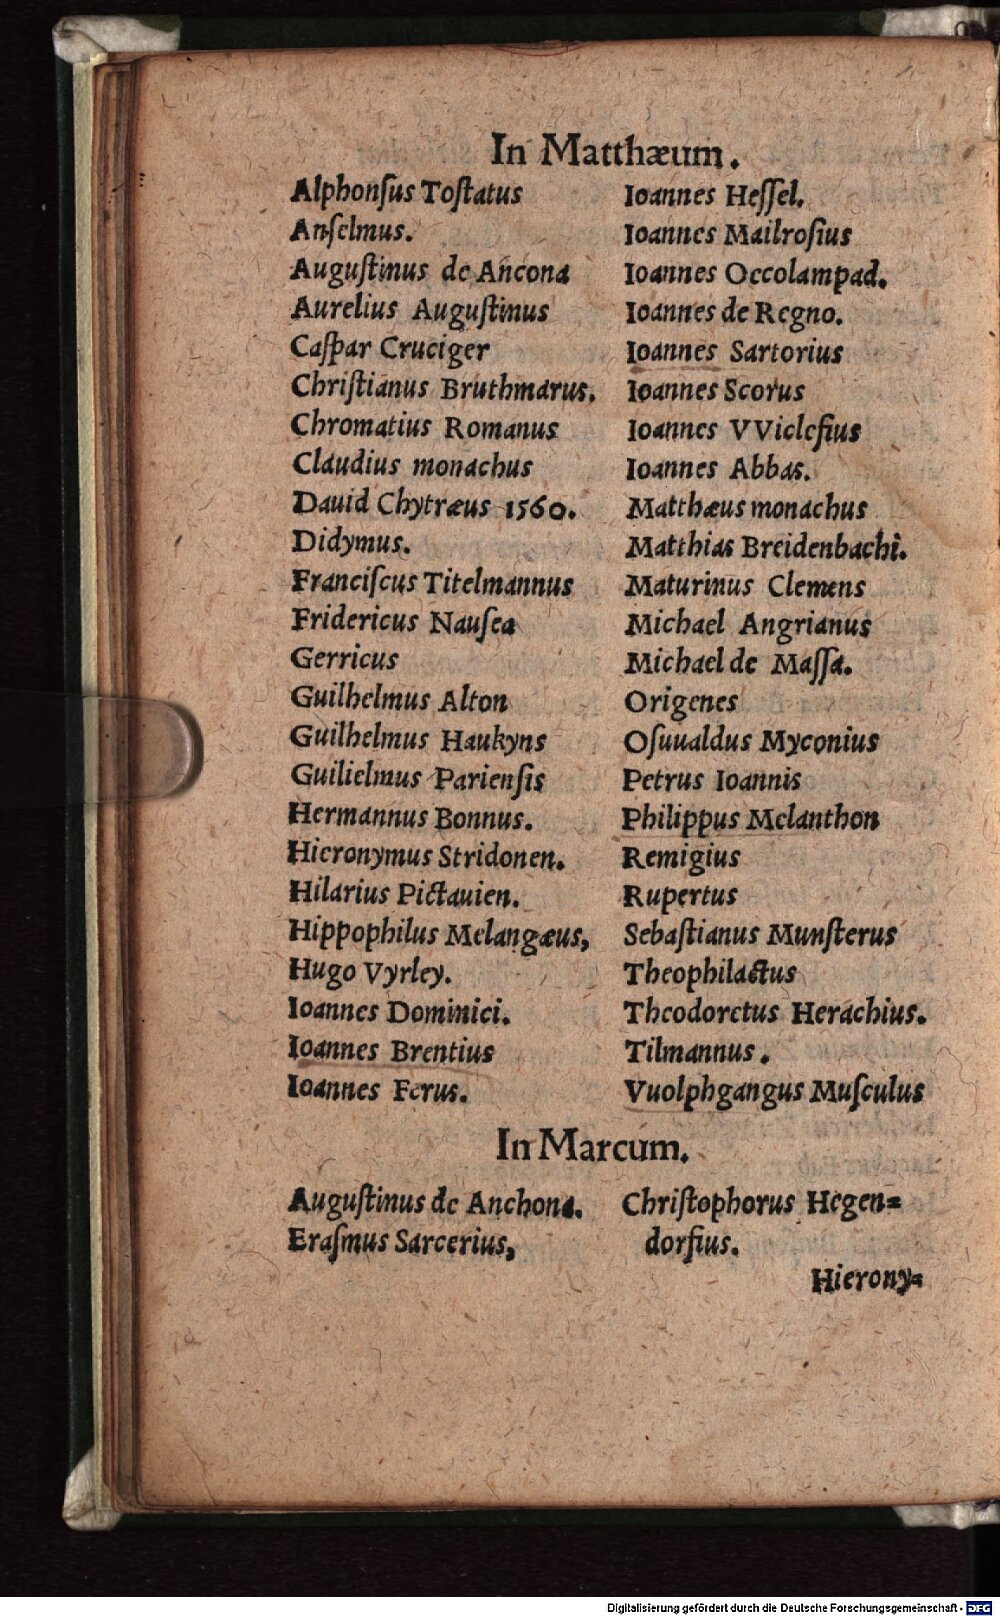 In Matthæum.
Alphonſus Toſtatus
Anſelmus.
Auguſtinus de Ancona
Aurelius Auguſtinus
Caſpar Cruciger
Chriſtianus Bruthmarus.
Chromatius Romanus
Claudius monachus
Dauid Chytræus 1560.
Didymus.
Franciſcus Titelmannus
Fridericus Nauſea
Gerricus
Guilhelmus Alton
Guilhelmus Haukyns
Guilielmus Parienſis
Hermannus Bonnus.
Hieronymus Stridonen.
Hilarius Pictauien.
Hippophilus Melangæus,
Hugo Vyrley.
Ioannes Dominici.
Ioannes Brentius
Ioannes Ferus.
Ioannes Heſſel.
Ioannes Mailroſius
Ioannes Oecolampad.
Ioannes de Regno.
Ioannes Sartorius
Ioannes Scorus
Ioannes VViclefius
Ioannes Abbas.
Matthæus monachus
Matthias Breidenbachi.
Maturinus Clemens
Michael Angrianus
Michael de Maſſa.
Origenes
Oſuualdus Myconius
Petrus Ioannis
Philippus Melanthon
Remigius
Rupertus
Sebaſtianus Munſterus
Theophilactus
Theodoretus Herachius.
Tilmannus.
Vuolphgangus Muſculus
In Marcum.
Auguſtinus de Anchona.
Eraſmus Sarcerius,
Chriſtophorus Hegen=
dorfius.
Hierony=
Digitalisierung gefördert durch die Deutsche Forschungsgemeinschaft - DFG